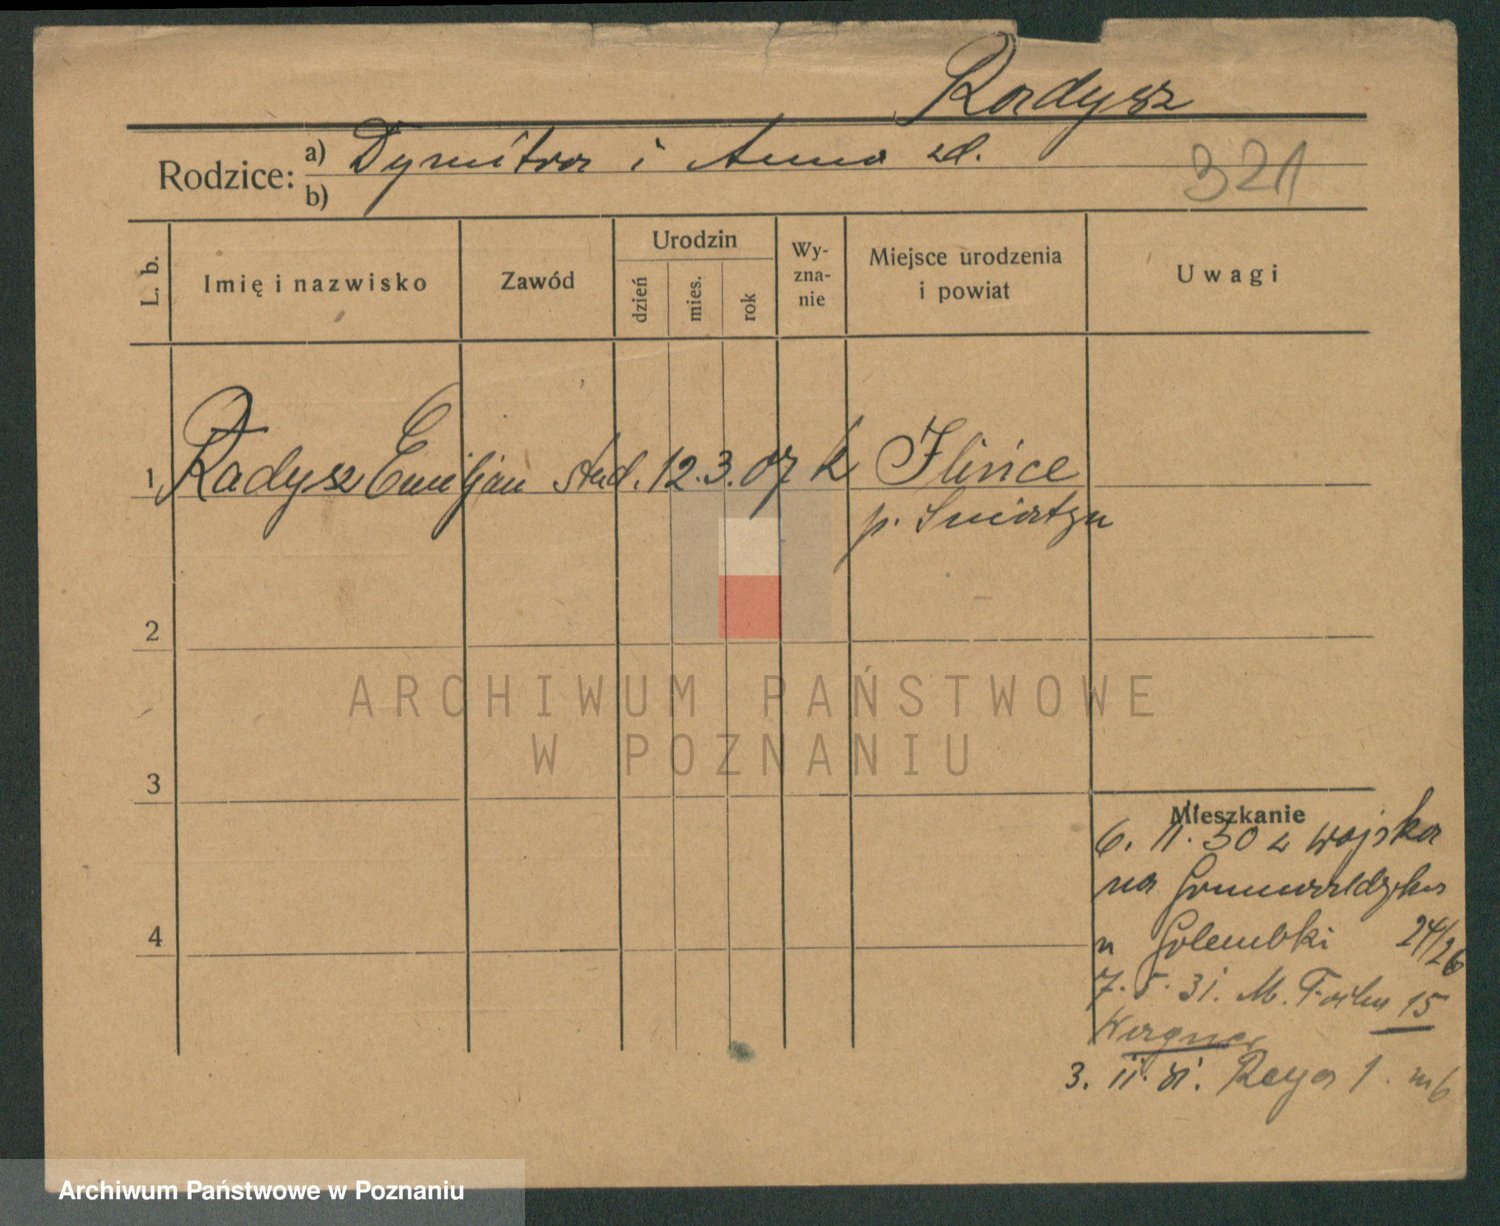 Radysz
Rodzice: a) Dymitra i Anna zd.
b)
321
L. b.
Imię i nazwisko
Zawód
Urodzin
dzień
mies.
rok
Wy-
zna-
nie
Miejsce urodzenia
i powiat
Uwagi
1 Radysz Emiljan stud. 12. 3. 07 k Ilińce
p. Śniatyn
2
3
4
Mieszkanie
6. 11. 30 z wojska
na Grunwaldzka
u Golembki 24/26
7. 5. 31. M. Focha 15
Wagner
3. 11. 31. Reya 1. m 6
ARCHIWUM PAŃSTWOWE
W POZNANIU
Archiwum Państwowe w Poznaniu